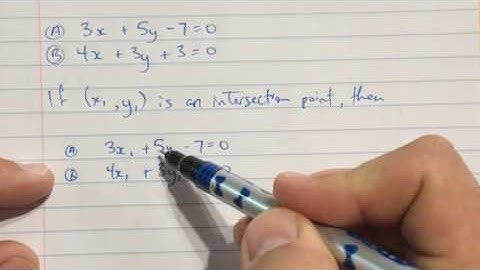 (A) 3x + 5y - 7 = 0
(B) 4x + 3y + 3 = 0
If (x₁, y₁) is an intersection point, then
(A) 3x₁ + 5y₁ - 7 = 0
(B) 4x₁ + 3y₁ 0